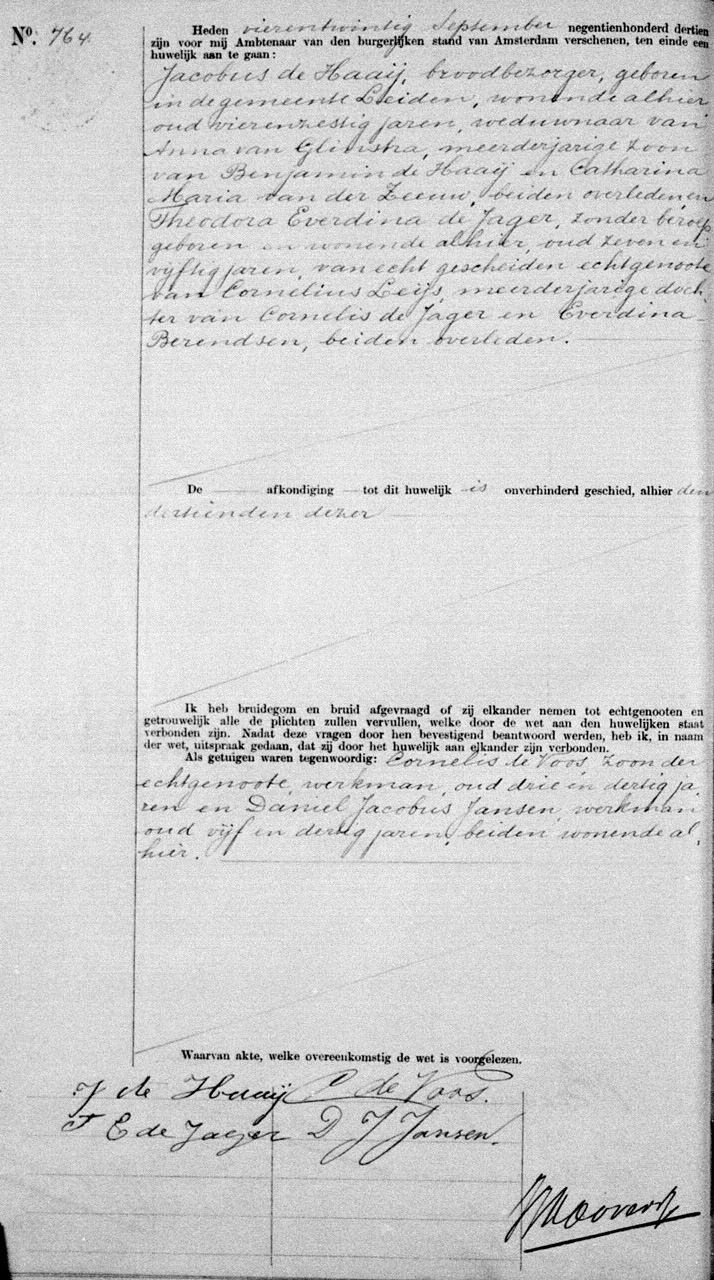 No. 764
Heden vierentwintig September negentienhonderd dertien
zijn voor mij Ambtenaar van den burgerlijken stand van Amsterdam verschenen, ten einde een
huwelijk aan te gaan:
Jacobus de Haaij, broodbezorger, geboren
in de gemeente Leiden, wonende alhier
oud vierenzestig jaren, weduwnaar van
Anna van Glinstra, meerderjarige zoon
van Benjamin de Haaij en Catharina
Maria van der Zeeuw, beiden overleden, en
Theodora Everdina de Jager, zonder beroep
geboren en wonende alhier, oud zeven en
vijftig jaren, van echt gescheiden echtgenoote
van Cornelius Leijs, meerderjarige doch-
ter van Cornelis de Jager en Everdina
Berendsen, beiden overleden.
De afkondiging tot dit huwelijk is onverhinderd geschied, alhier den
dertienden dezer
Ik heb bruidegom en bruid afgevraagd of zij elkander nemen tot echtgenooten en
getrouwelijk alle de plichten zullen vervullen, welke door de wet aan den huwelijken staat
verbonden zijn. Nadat deze vragen door hen bevestigend beantwoord werden, heb ik, in naam
der wet, uitspraak gedaan, dat zij door het huwelijk aan elkander zijn verbonden.
Als getuigen waren tegenwoordig: Cornelis de Voos, zoon der
echtgenoote, werkman, oud drie en dertig ja,
ren en Daniel Jacobus Jansen, werkman
oud vijf en dertig jaren, beiden wonende al,
hier.
Waarvan akte, welke overeenkomstig de wet is voorgelezen.
J de Haaij C de Voos.
T E de Jager D J Jansen.